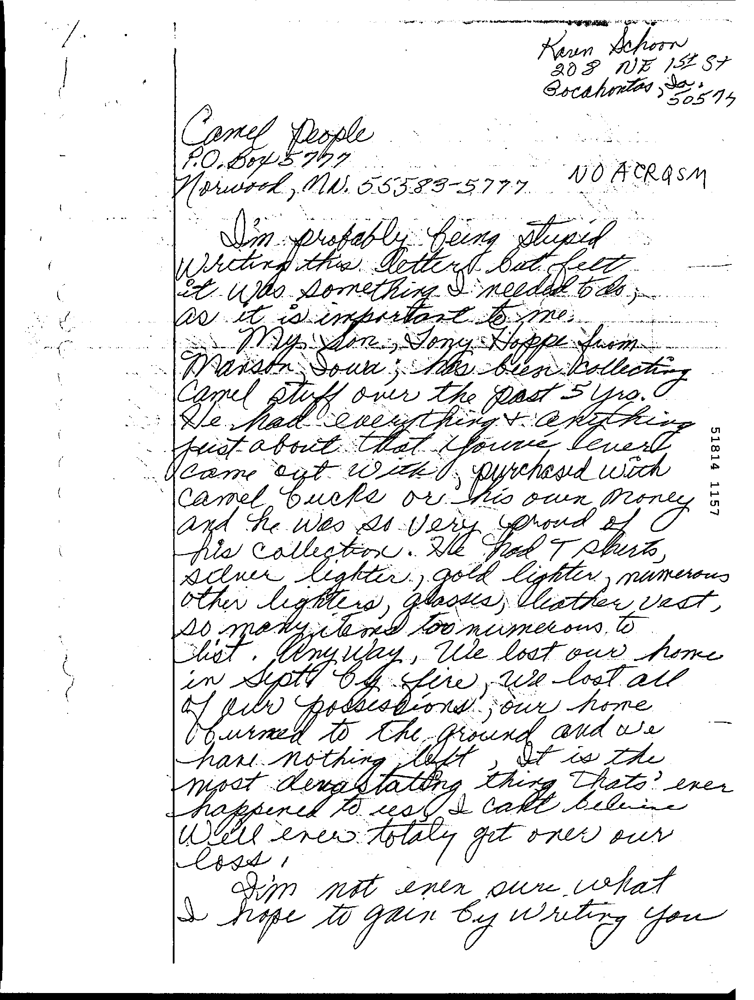 1.
Karen Schoon
208 NE 1st St
Pocahontas, Ia.
50574
Camel People
P.O. Box 5777
Norwood, Mn. 55583-5777
NO ACRQSM
I'm probably being stupid
writing this letter but felt
it was something I needed to do,
as it is important to me.
My son, Tony Hoppe from
Manson, Iowa; has been collecting
Camel stuff over the past 5 yrs.
He had everything & anything
just about that you've ever
came out with, purchased with
camel bucks or his own money
and he was so very proud of
his collection. He had T shirts,
silver lighter, gold lighter, numerous
other lighters, glasses, leather vest,
so many items too numerous to
list. Anyway, We lost our home
in Sept by fire, we lost all
of our possessions, our home
burned to the ground and we
have nothing left, It is the
most devastating thing thats' ever
happened to us, I can't believe
we'll ever totaly get over our
loss.
I'm not even sure what
I hope to gain by writing you
51814 1157